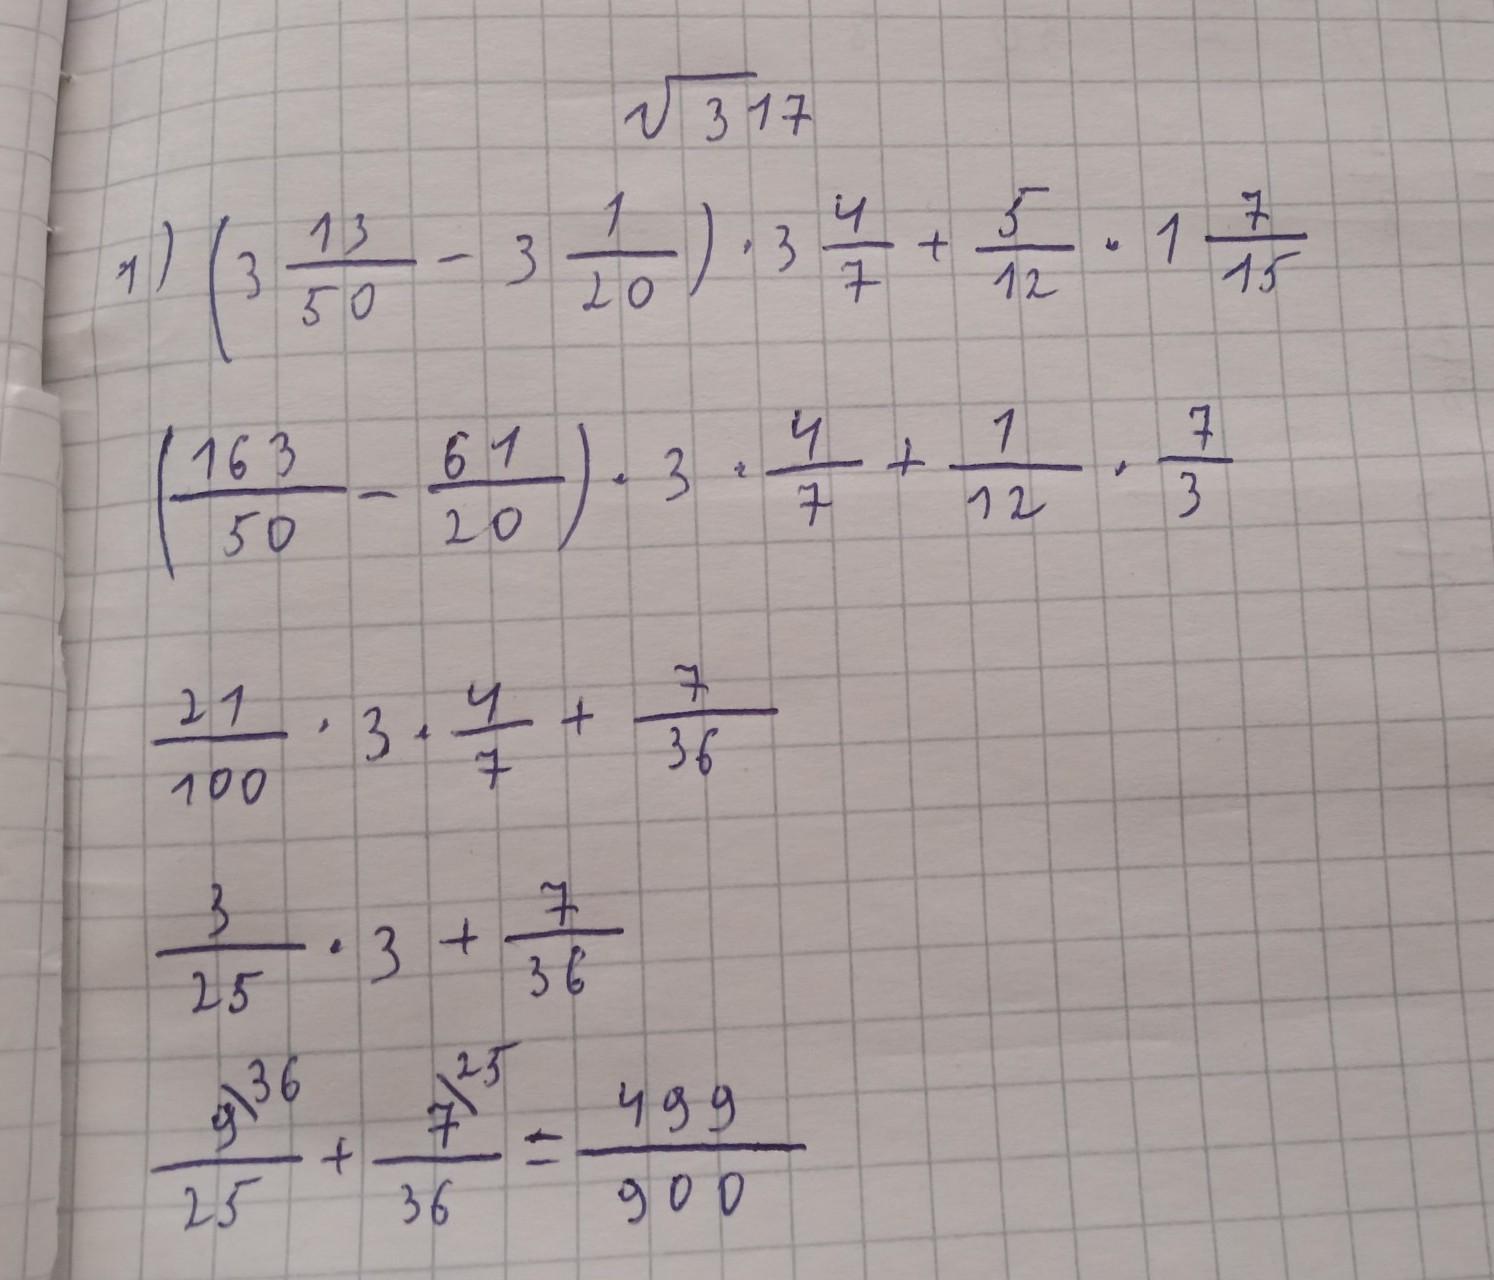 √317
1) (3 13/50 - 3 1/20) · 3 4/7 + 5/12 · 1 7/15
(163/50 - 61/20) · 3 · 4/7 + 1/12 · 7/3
21/100 · 3 · 4/7 + 7/36
3/25 · 3 + 7/36
9\36/25 + 7\25/36 = 499/900